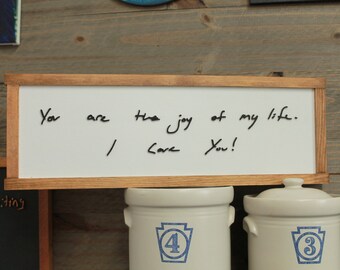 You are the joy of my life.
I Love You!
4
3